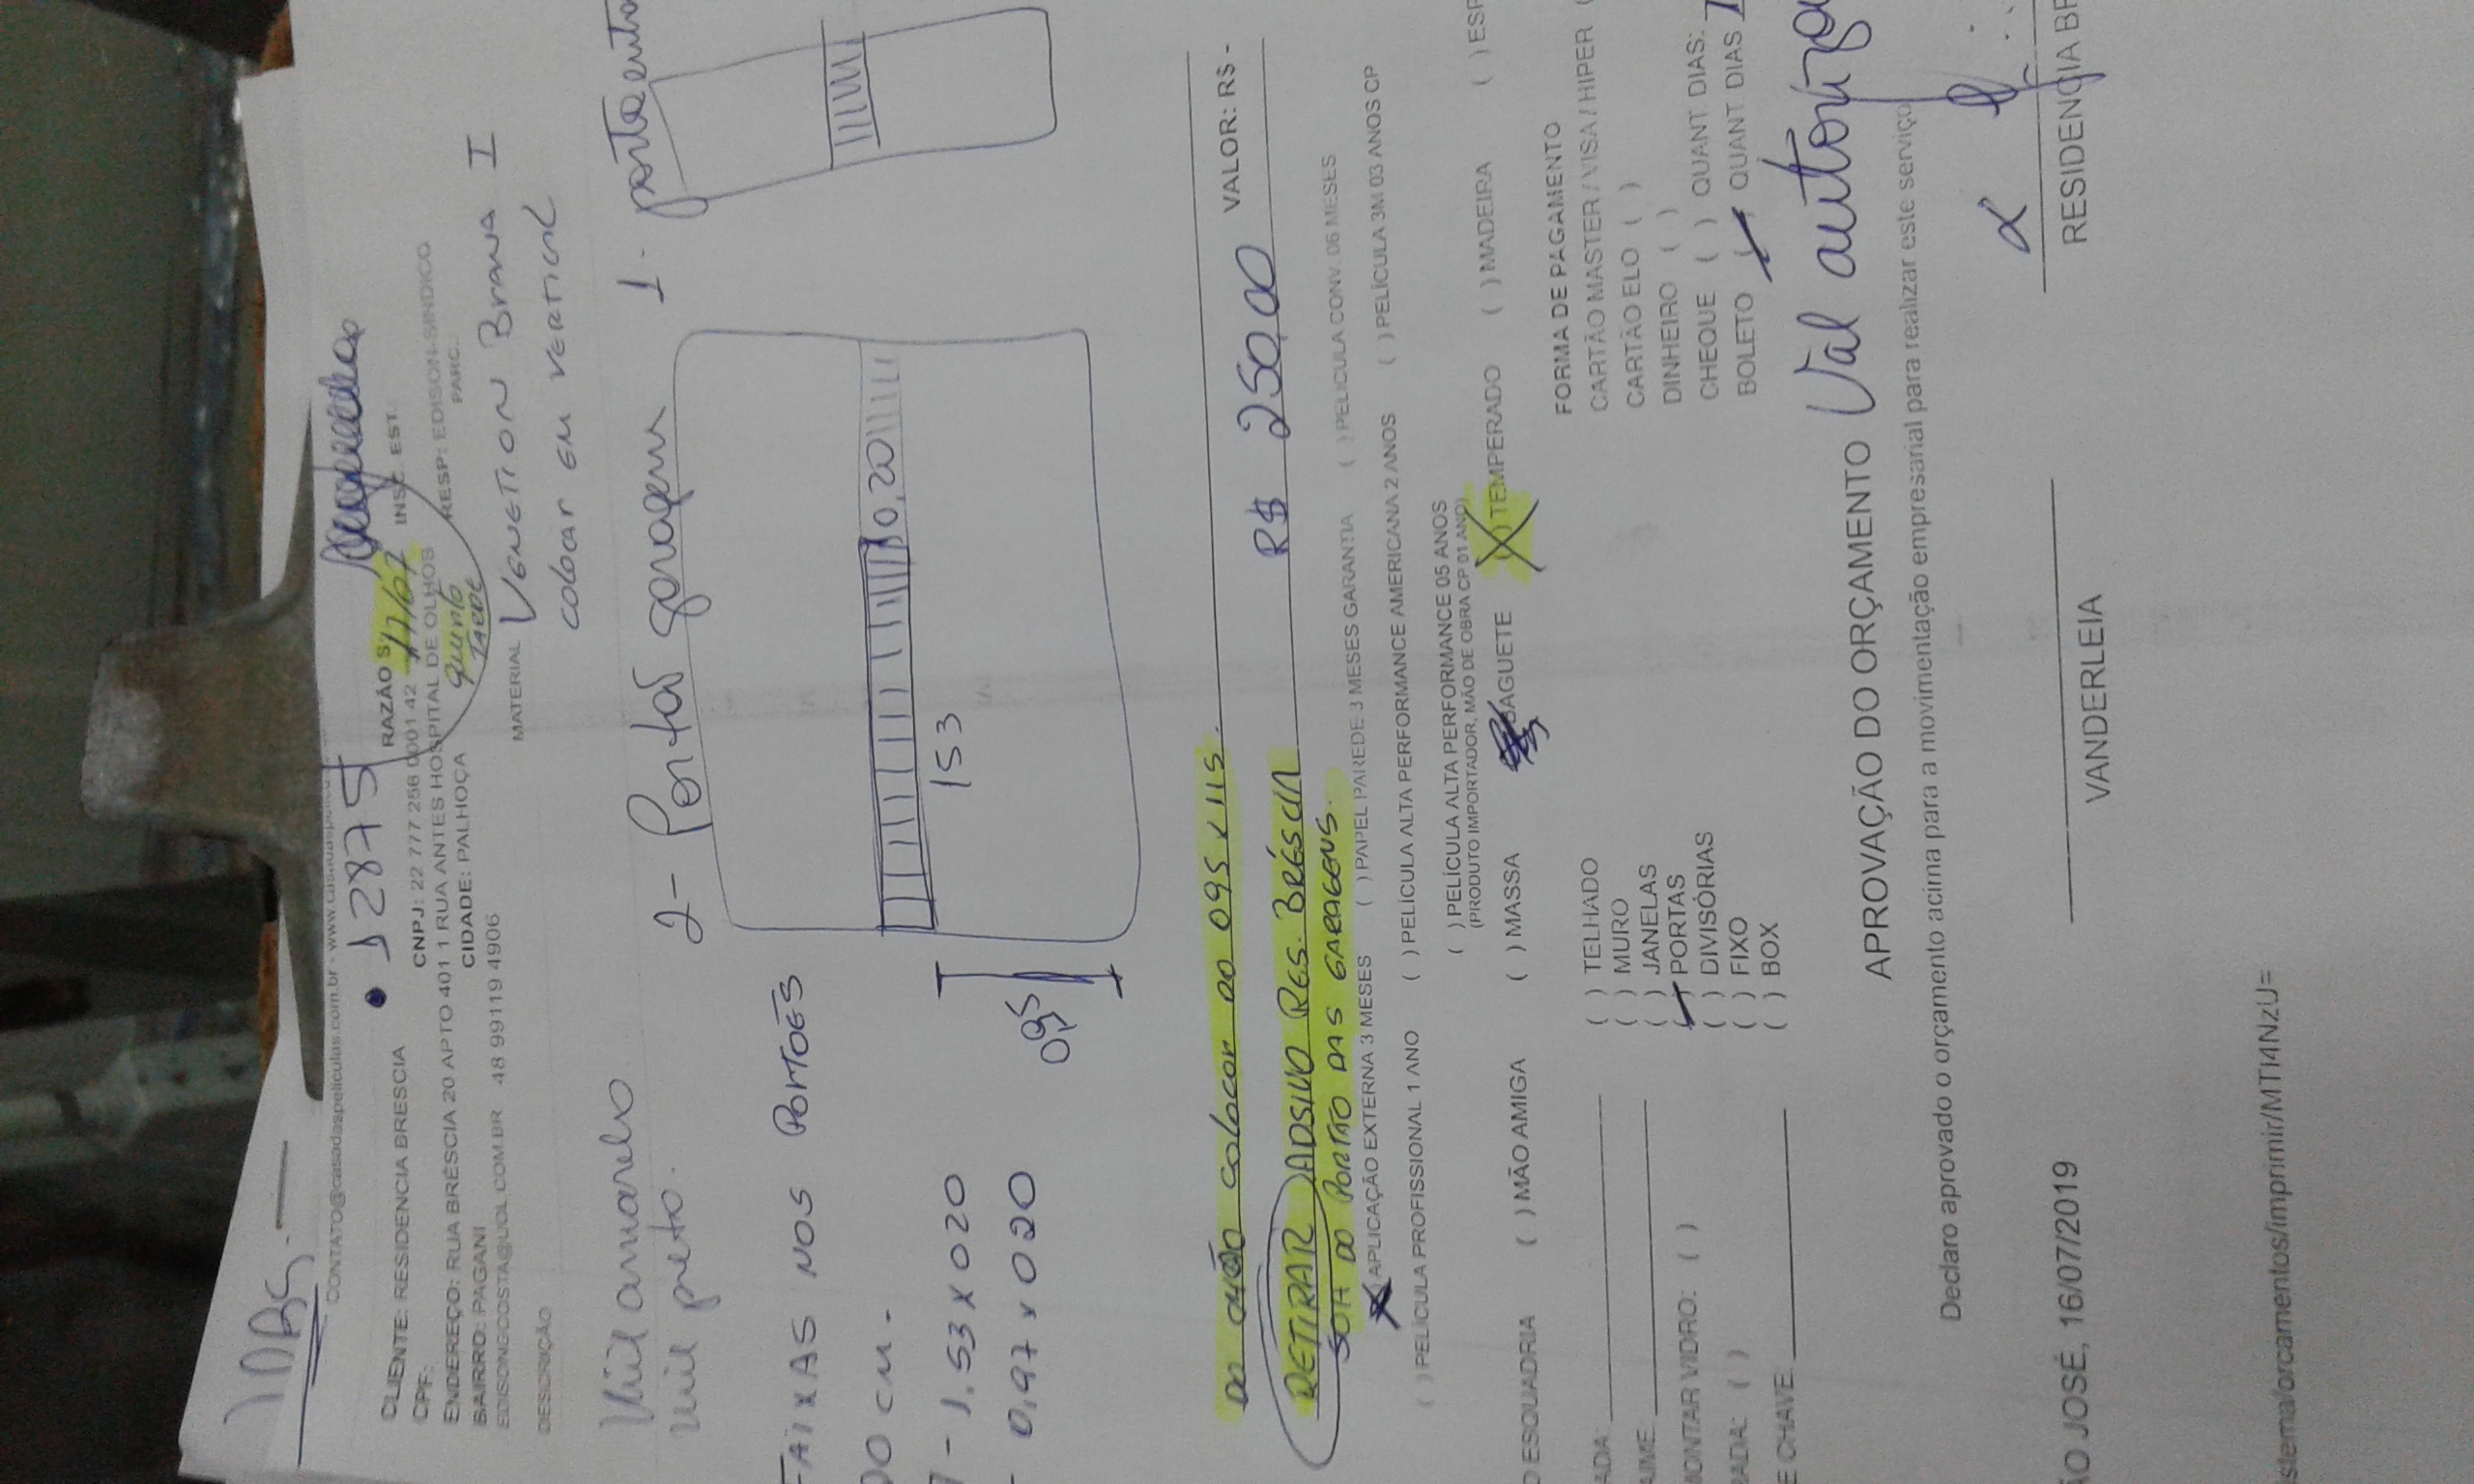 OBS.
CONTATO@casadaspeliculas.com.br - www.
12875
CLIENTE: RESIDENCIA BRESCIA
RAZÃO S
17/07
CPF:
CNPJ: 22 777 256 0001 42
INSC. EST.:
ENDEREÇO: RUA BRÉSCIA 20 APTO 401 1 RUA ANTES HOSPITAL DE OLHOS
RESP: EDISON-SINDICO
BAIRRO: PAGANI
CIDADE: PALHOÇA
PARC.:
EDISONGCOSTA@UOL.COM.BR
48 99119 4906
DESCRIÇÃO
MATERIAL
I
colocar em vertical
Vinil amarelo
vinil preto.
2- Portas garagem
1- porta
FAIXAS NOS PORTOES
0,20
153
- 1.53 x 020
- 0,97 x 020
0,95
Do chão colocar ao 095 x 115.
VALOR: R$-
RETIRAR ADSIVO RES. BRÉSCIA
R$ 250,00
DO PORTÃO DAS GARAGENS.
(X) APLICAÇÃO EXTERNA 3 MESES ( ) PAPEL PAREDE 3 MESES GARANTIA ( ) PELICULA CONV. 06 MESES
( ) PELÍCULA PROFISSIONAL 1 ANO ( ) PELÍCULA ALTA PERFORMANCE AMERICANA 2 ANOS ( ) PELÍCULA 3M 03 ANOS CP
( ) PELÍCULA ALTA PERFORMANCE 05 ANOS
(PRODUTO IMPORTADOR, MÃO DE OBRA CP 01 ANO)
ESQUADRIA ( ) MÃO AMIGA ( ) MASSA BAGUETE (X) TEMPERADO ( ) MADEIRA ( ) ESP
ADA:
( ) TELHADO
FORMA DE PAGAMENTO
UME:
( ) MURO
CARTÃO MASTER / VISA / HIPER (
MONTAR VIDRO: ( )
( ) JANELAS
CARTÃO ELO ( )
( ) PORTAS
DINHEIRO ( )
( ) DIVISÓRIAS
CHEQUE ( ) QUANT. DIAS:
( ) FIXO
BOLETO QUANT DIAS
E CHAVE:
( ) BOX
APROVAÇÃO DO ORÇAMENTO
Val
Declaro aprovado o orçamento acima para a movimentação empresarial para realizar este serviço
ÃO JOSÉ, 16/07/2019
VANDERLEIA
RESIDENCIA BR
istema/orcamentos/imprimir/MTI4NzU=